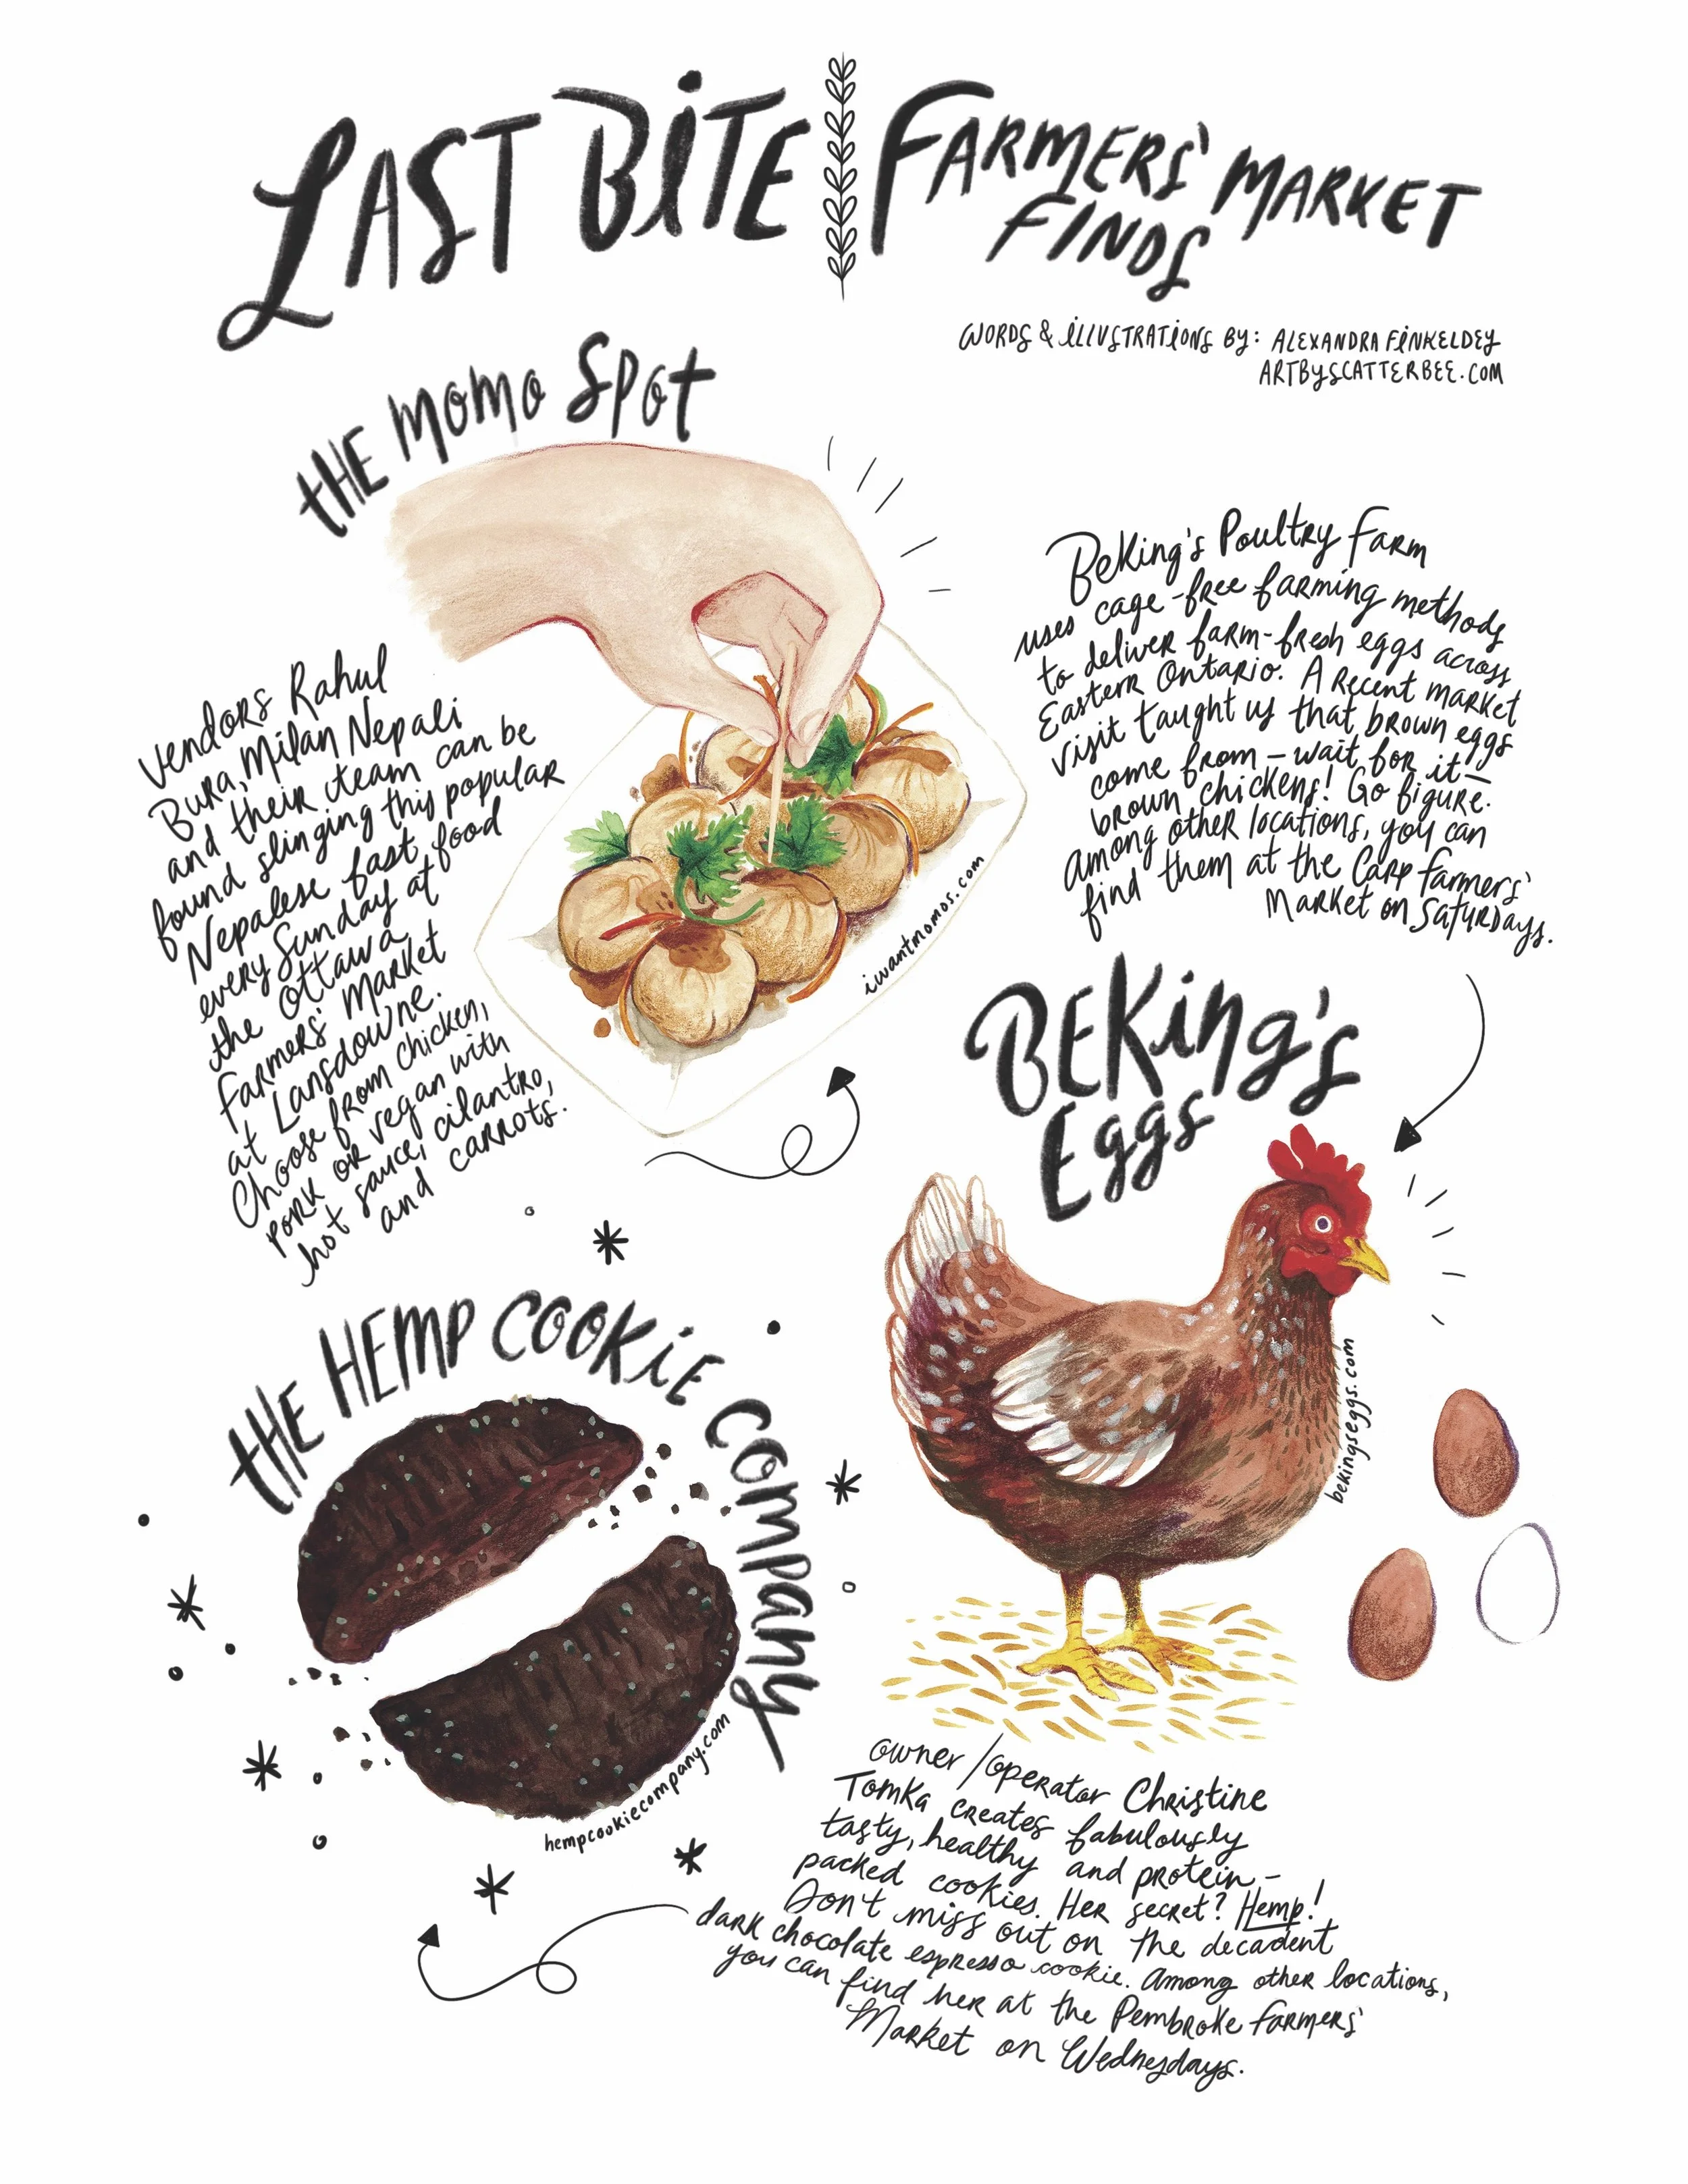 LAST BITE
FARMERS' MARKET
FINDS
WORDS & ILLUSTRATIONS BY: ALEXANDRA FINKELDEY
ARTBYSCATTERBEE.COM
THE MOMO SPOT
Vendors Rahul
Bura, Milan Nepali
and their team can be
found slinging this popular
Nepalese fast food
every Sunday at
the Ottawa
Farmers' Market
at Lansdowne.
Choose from chicken,
pork or vegan with
hot sauce, cilantro,
and carrots.
iwantmomos.com
BeKing's Poultry Farm
uses cage-free farming methods
to deliver farm-fresh eggs across
Eastern Ontario. A recent market
visit taught us that brown eggs
come from – wait for it –
brown chickens! Go figure.
Among other locations, you can
find them at the Carp Farmers'
Market on Saturdays.
BEKing's
Eggs
bekingseggs.com
THE HEMP COOKIE COMPANY
hempcookiecompany.com
Owner/operator Christine
Tomka creates fabulously
tasty, healthy and protein-
packed cookies. Her secret? Hemp!
Don't miss out on the decadent
dark chocolate espresso cookie. Among other locations,
you can find her at the Pembroke Farmers'
Market on Wednesdays.